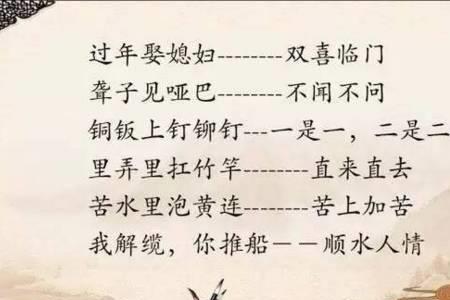 过年娶媳妇--------双喜临门
聋子见哑巴--------不闻不问
铜钣上钉铆钉---一是一，二是二
里弄里扛竹竿--------直来直去
苦水里泡黄连--------苦上加苦
我解缆，你推船－－顺水人情